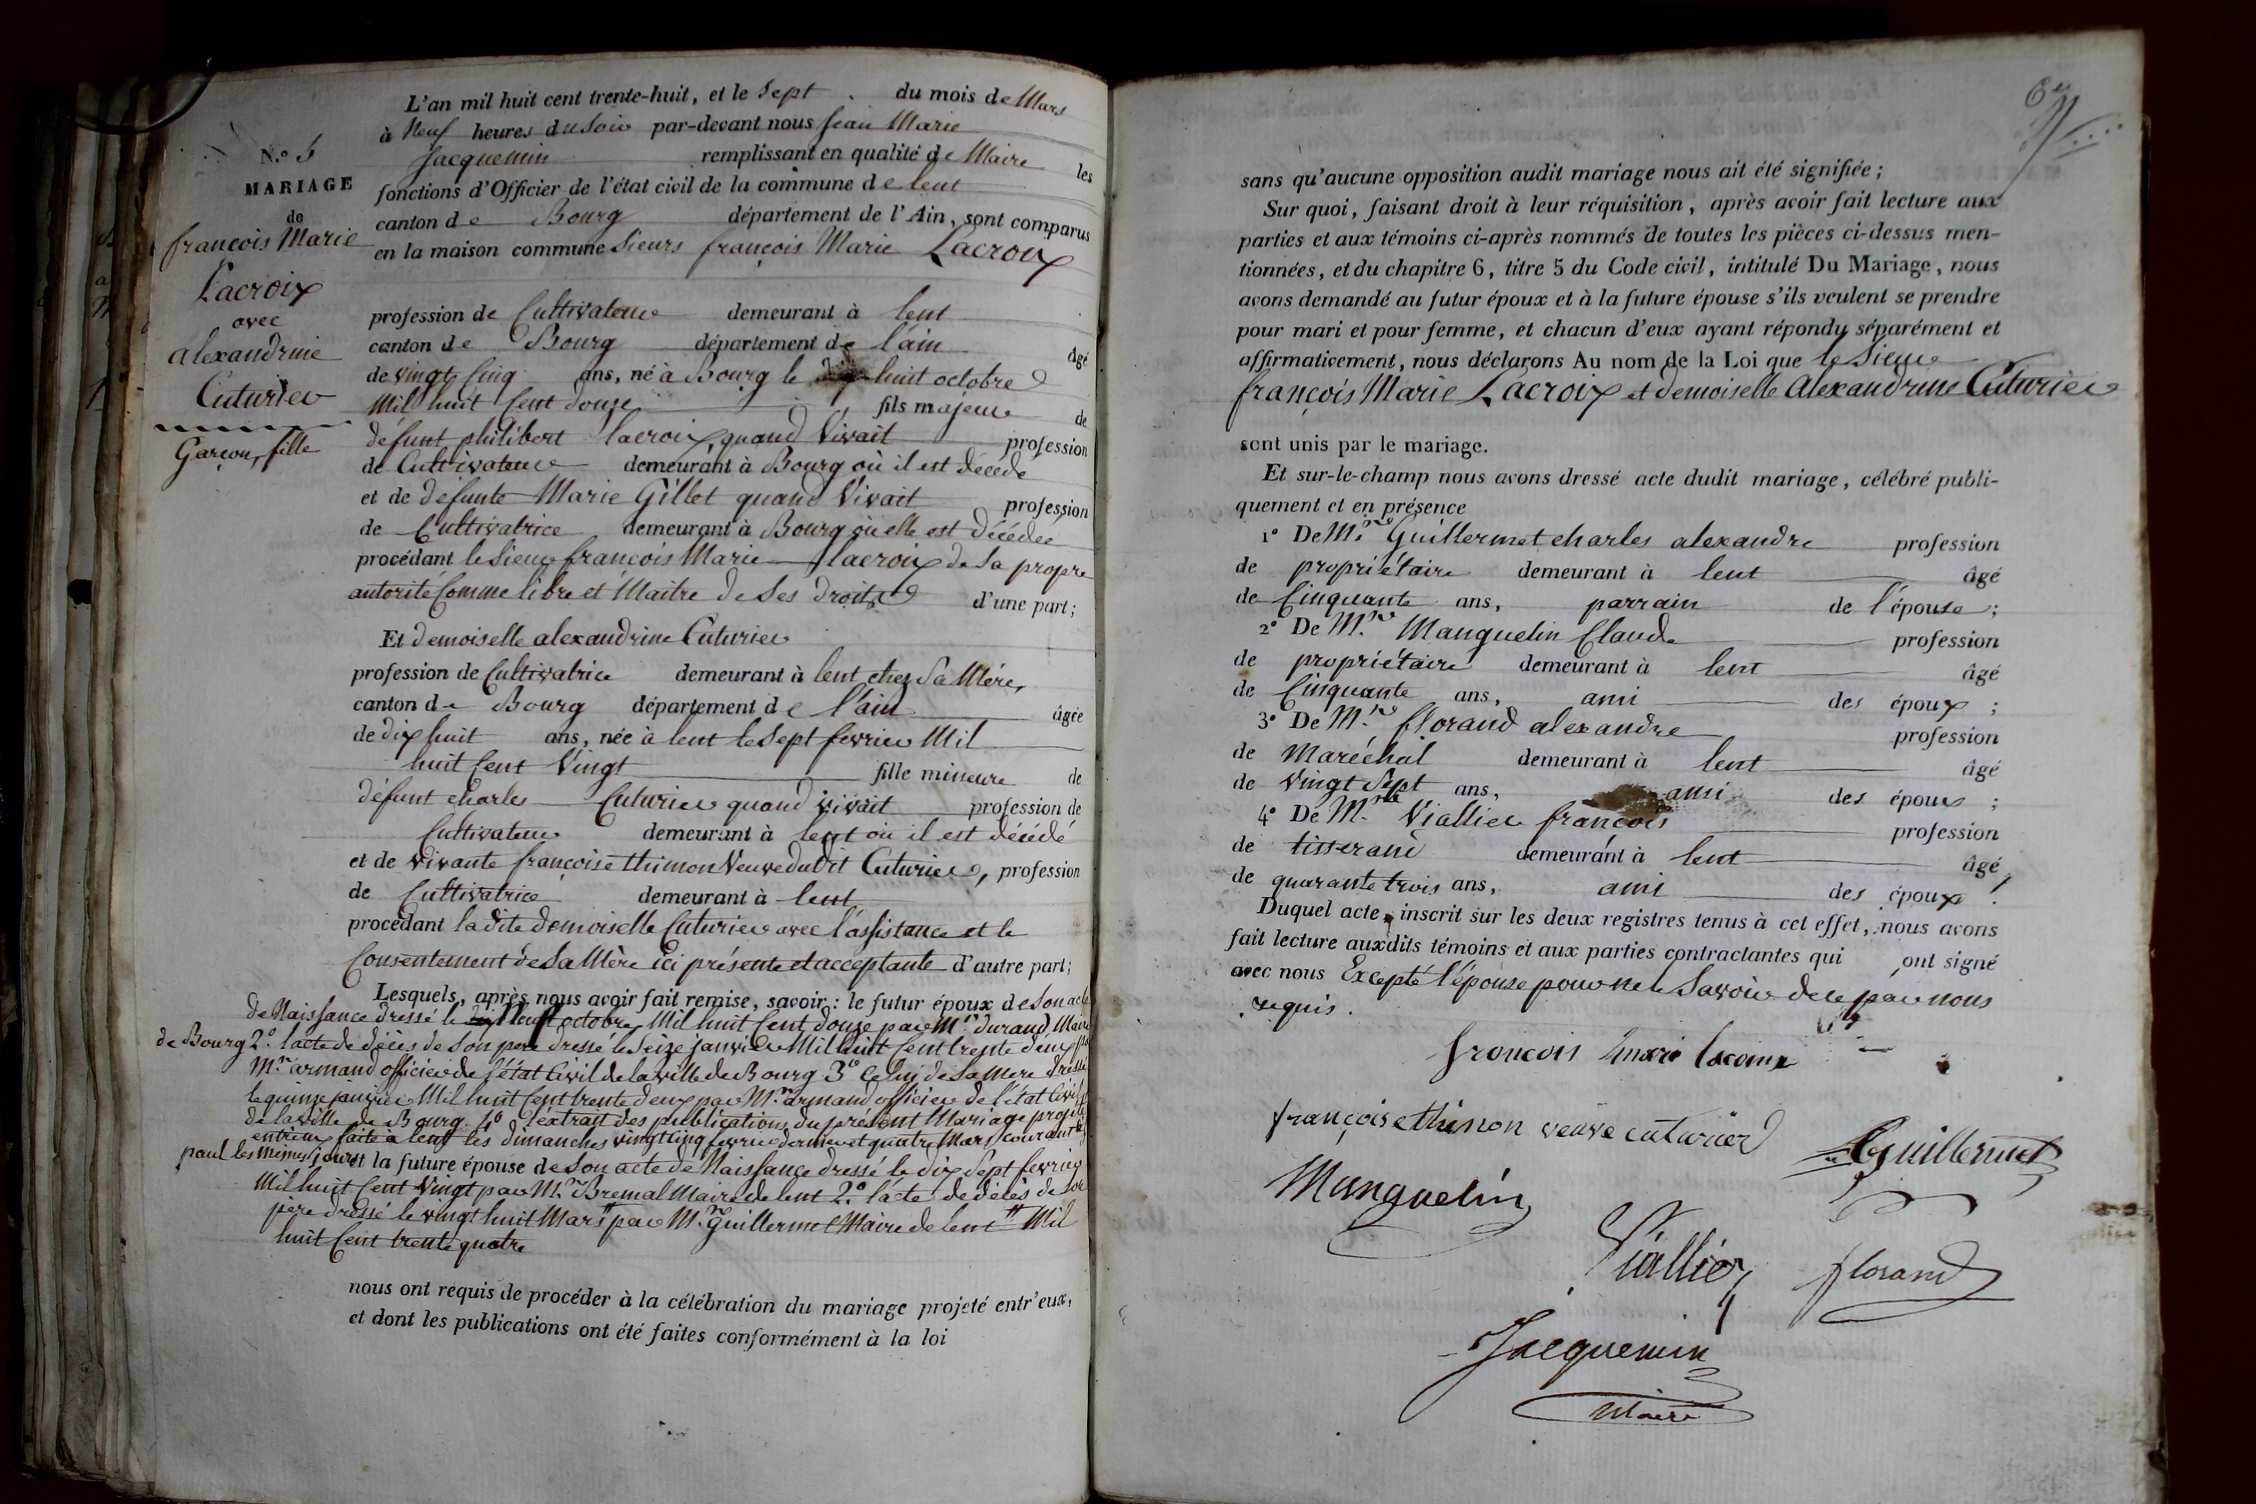 N.° 5
MARIAGE
de
françois Marie
Lacroix
avec
alexandrine
Cuturier
Garçon, fille
L'an mil huit cent trente-huit, et le Sept du mois de Mars
à Neuf heures du Soir par-devant nous Jean Marie
Jacquemin remplissant en qualité de Maire les
fonctions d'Officier de l'état civil de la commune de lent
canton de Bourg département de l'Ain, sont comparus
en la maison commune Sieurs françois Marie Lacroix
profession de Cultivateur demeurant à lent
canton de Bourg département de l'ain âgé
de vingt Cinq ans, né à Bourg le huit octobre
Mil huit Cent douze fils majeur de
défunt philibert lacroix, quand Vivait profession
de Cultivateur demeurant à Bourg où il est décédé
et de défunte Marie Gillet quand Vivait profession
de Cultivatrice demeurant à Bourg où elle est décédée
procédant le Sieur françois Marie lacroix de Sa propre
autorité Comme libre et Maitre de Ses droits d'une part;
Et demoiselle alexandrine Cuturier
profession de Cultivatrice demeurant à lent chez Sa Mère,
canton de Bourg département de l'ain âgée
de dix huit ans, née à lent le Sept fevrier Mil
huit Cent Vingt fille mineure de
défunt charles Cuturier quand vivait profession de
Cultivateur demeurant à lent où il est décédé
et de vivante françoise thimon Veuve dudit Cuturier, profession
de Cultivatrice demeurant à lent
procédant ladite demoiselle Cuturier avec l'assistance et le
Consentement de Sa Mère ici présente et acceptante d'autre part;
Lesquels, après nous avoir fait remise, savoir: le futur époux de Son acte
de Naissance dressé le Neuf octobre Mil huit Cent douze par M.r durand, Maire
de Bourg 2.° l'acte de décès de Son père dressé le Seize janvier Mil huit Cent trente deux par
M.r armand officier de l'état Civil de la ville de Bourg 3.° Celui de Sa Mère dressé
le quinze janvier Mil huit Cent trente deux par M.r armand officier de l'état Civil
de la ville de Bourg. 4.° l'extrait des publications du présent Mariage projeté
entr'eux faite à lent les dimanches vingt Cinq fevrier dernier et quatre Mars courant
paul les mêmes jours Et la future épouse de Son acte de Naissance dressé le dix Sept fevrier
Mil huit Cent Vingt par M.r Bremal Maire de lent 2.° l'acte de décès de Son
père dressé le vingt huit Mars " par M.r Guillermet Maire de lent " Mil
huit Cent trente quatre
nous ont requis de procéder à la célébration du mariage projeté entr'eux,
et dont les publications ont été faites conformément à la loi
sans qu'aucune opposition audit mariage nous ait été signifiée;
Sur quoi, faisant droit à leur réquisition, après avoir fait lecture aux
parties et aux témoins ci-après nommés de toutes les pièces ci-dessus men-
tionnées, et du chapitre 6, titre 5 du Code civil, intitulé Du Mariage, nous
avons demandé au futur époux et à la future épouse s'ils veulent se prendre
pour mari et pour femme, et chacun d'eux ayant répondu séparément et
affirmativement, nous déclarons Au nom de la Loi que le Sieur
françois Marie Lacroix et demoiselle Alexandrine Cuturier
sont unis par le mariage.
Et sur-le-champ nous avons dressé acte dudit mariage, célébré publi-
quement et en présence
1° De M.r Guillermet charles alexandre profession
de propriétaire demeurant à lent âgé
de Cinquante ans, parrain de l'épouse;
2° De M.r Manguelin Claude profession
de propriétaire demeurant à lent âgé
de Cinquante ans, ami des époux;
3° De M.r florand alexandre profession
de Maréchal demeurant à lent âgé
de Vingt Sept ans, ami des époux;
4° De M.r Viallier françois profession
de tisserand demeurant à lent âgé
de quarante trois ans, ami des époux!
Duquel acte, inscrit sur les deux registres tenus à cet effet, nous avons
fait lecture auxdits témoins et aux parties contractantes qui ont signé
avec nous Excepté l'épouse pour ne le Savoir de ce par nous
requis.
françois marie lacroix
françoise thimon veuve cuturier
Guillermet
Manguelin
Viallier
florand
Jacquemin
Maire